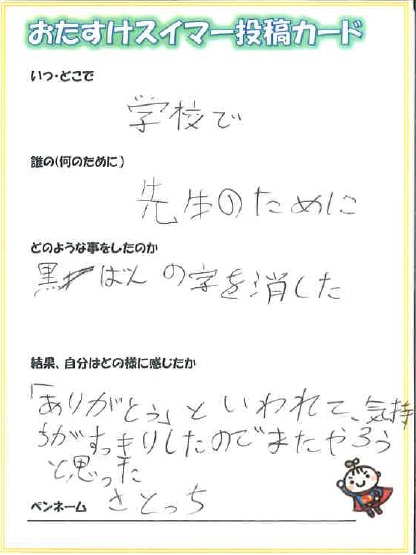 おたすけスイマー投稿カード
いつ・どこで
学校で
誰の(何のために)
先生のために
どのような事をしたのか
黒ばんの字を消した
結果、自分はどの様に感じたか
「ありがとう」といわれて、気持
ちがすっきりしたのでまたやろう
と思った
ペンネーム さとっち